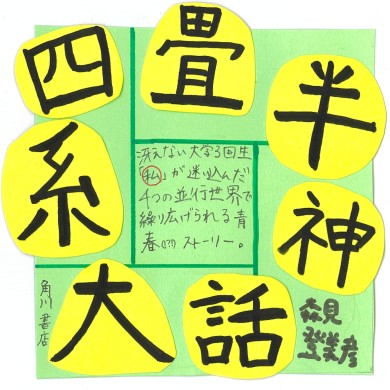 四畳半神話大系
冴えない大学3回生
「私」が迷い込んだ
4つの並行世界で
繰り広げられる青
春(!?)ストーリー。
森見
登美彦
角川書店